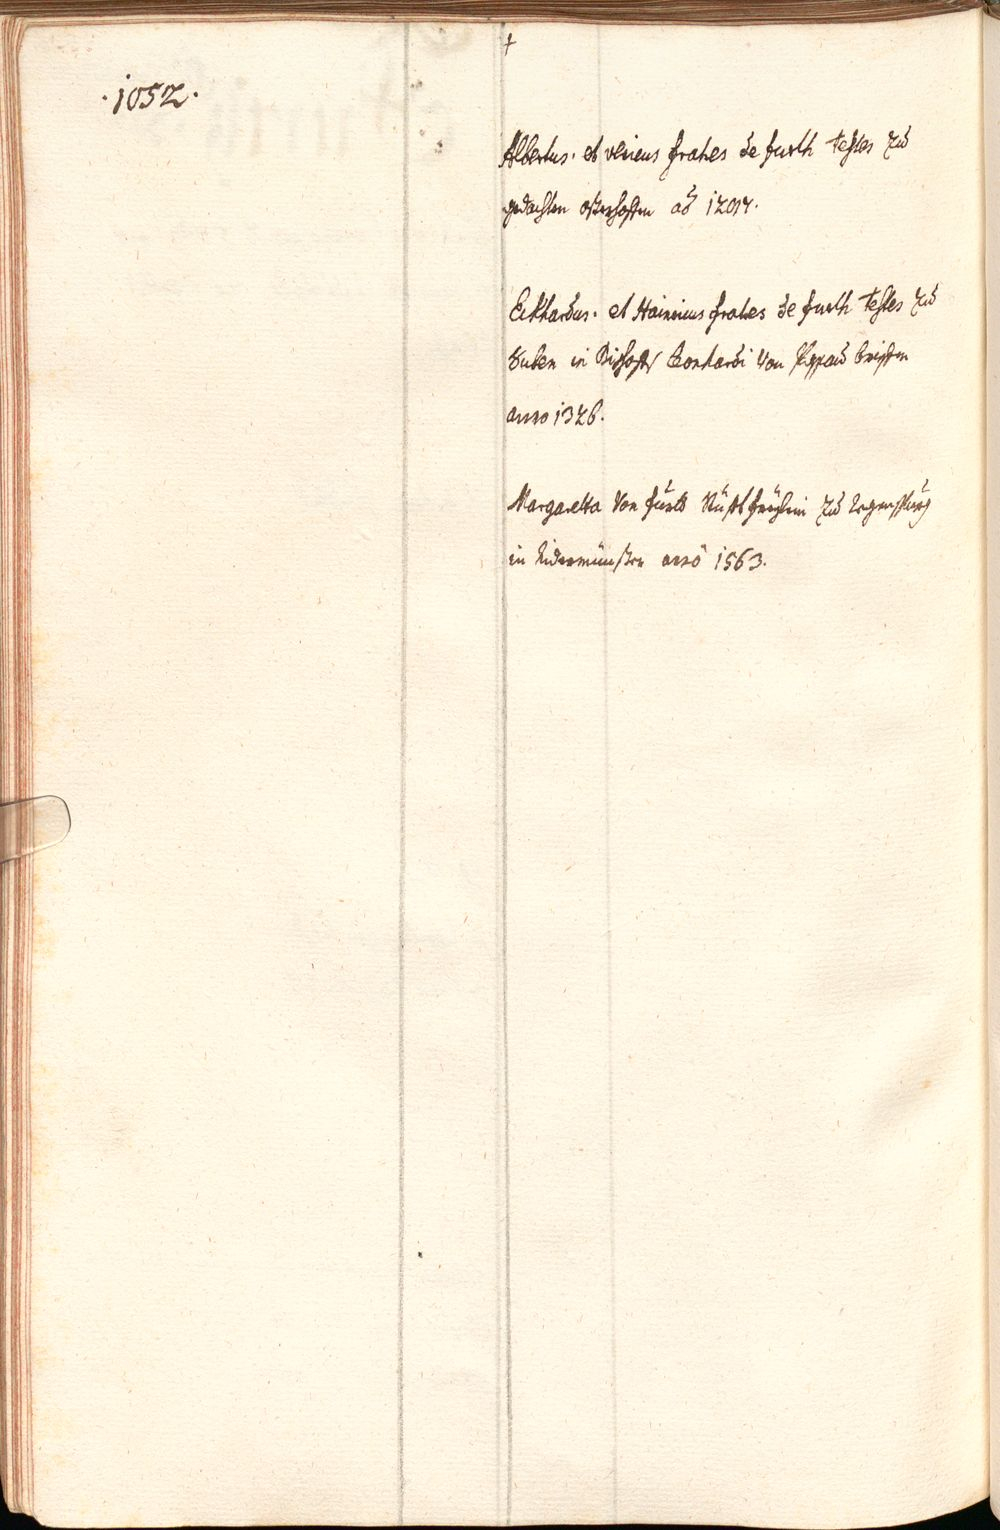 †
·1052·
Albertus· et Ulricus fratres de furth testes zu
gedachten osterhofen aō
Eckhardus· et Hainricus fratres de furth testes zu
Suben in Bischofs Leonhardi von Passau briefen
anno 1326·
Margaretta von fürtt Stüfftfreylein zu regenspurg
in Nidermünster anno 1563·